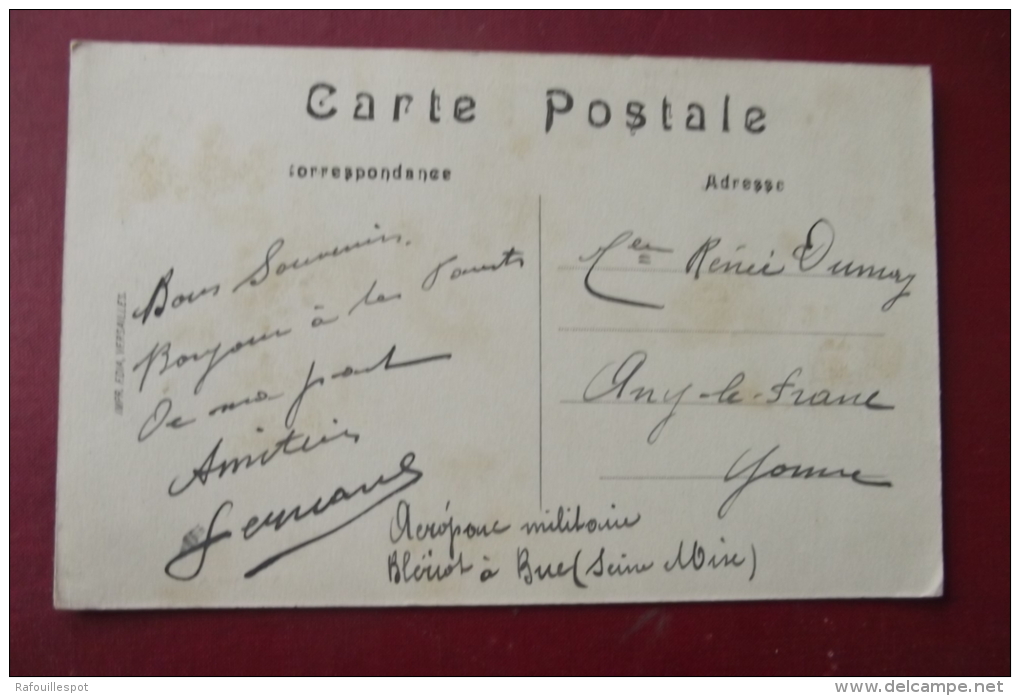 Carte Postale
Correspondance
Adresse
Bons Souvenirs.
Bonjour à tes Parents
De ma part
Amitiés
IMPR. EDIA, VERSAILLES.
Renée Dumay
Ancy-le-Franc
Yonne
Aéroparc militaire
Blériot à Buc (Seine Oise)
Rafouillespot
www.delcampe.net